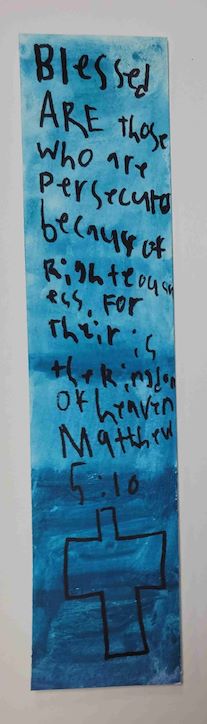 Blessed
ARE those
who are
Persecuto
because of
Righteousn
ess. For
Their is
the Kingdom
Of heaven
Matthew
5:10